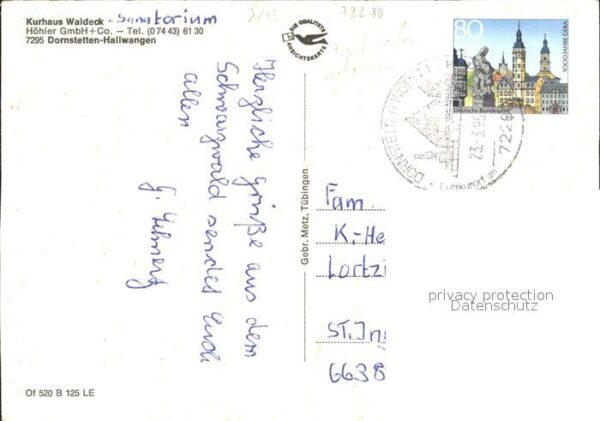 Kurhaus Waldeck - Sanatorium
Höhler GmbH+Co. – Tel. (0 74 43) 61 30
7295 Dornstetten-Hallwangen
DIE QUALITÄTS
ANSICHTSKARTE
72280
80
1000 JAHRE GERA
Deutsche Bundespost
DORNSTETTEN
23.3.95
7229
Luftkurort im
Herzliche Grüße aus dem
Schwarzwald sendet Euch
allen
G.
Gebr. Metz, Tübingen
Fam
K.-He
Lortzi
ST. In
6638
privacy protection
Datenschutz
Of 520 B 125 LE